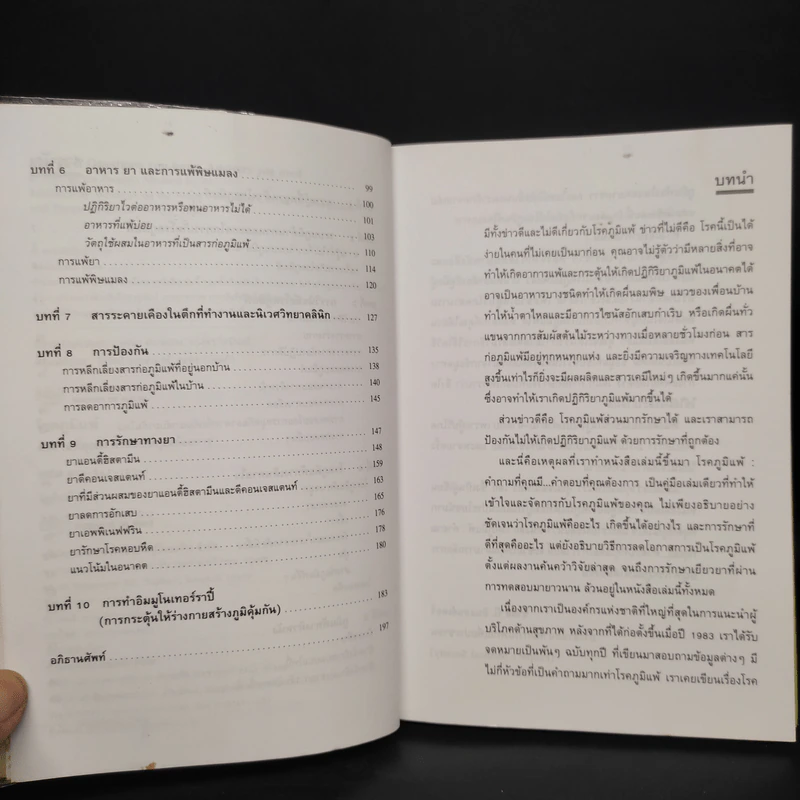 บทที่ 6 อาหาร ยา และการแพ้พิษแมลง 99
การแพ้อาหาร 100
ปฏิกิริยาไวต่ออาหารหรือทนอาหารไม่ได้ 101
อาหารที่แพ้บ่อย 103
วัตถุใช้ผสมในอาหารที่เป็นสารก่อภูมิแพ้ 110
การแพ้ยา 114
การแพ้พิษแมลง 120
บทที่ 7 สารระคายเคืองในตึกที่ทำงานและนิเวศวิทยาคลินิก 127
บทที่ 8 การป้องกัน 135
การหลีกเลี่ยงสารก่อภูมิแพ้ที่อยู่นอกบ้าน 138
การหลีกเลี่ยงสารก่อภูมิแพ้ในบ้าน 140
การลดอาการภูมิแพ้ 145
บทที่ 9 การรักษาทางยา 147
ยาแอนตี้ฮิสตามีน 148
ยาดีคอนเจสแตนท์ 159
ยาที่มีส่วนผสมของยาแอนตี้ฮิสตามีนและดีคอนเจสแตนท์ 163
ยาลดการอักเสบ 165
ยาเอพพิเนฟฟริน 176
ยารักษาโรคหอบหืด 178
แนวโน้มในอนาคต 180
บทที่ 10 การทำอิมมูโนเทอร์ราปี้ 183
(การกระตุ้นให้ร่างกายสร้างภูมิคุ้มกัน)
อภิธานศัพท์ 197
บทนำ
มีทั้งข่าวดีและไม่ดีเกี่ยวกับโรคภูมิแพ้ ข่าวที่ไม่ดีคือ โรคนี้เป็นได้
ง่ายในคนที่ไม่เคยเป็นมาก่อน คุณอาจไม่รู้ตัวว่ามีหลายสิ่งที่อาจ
ทำให้เกิดอาการแพ้และกระตุ้นให้เกิดปฏิกิริยาภูมิแพ้ในอนาคตได้
อาจเป็นอาหารบางชนิดทำให้เกิดผื่นลมพิษ แมวของเพื่อนบ้าน
ทำให้น้ำตาไหลและมีอาการไซนัสอักเสบกำเริบ หรือเกิดผื่นทั่ว
แขนจากการสัมผัสต้นไม้ระหว่างทางเมื่อหลายชั่วโมงก่อน สาร
ก่อภูมิแพ้มีอยู่ทุกหนทุกแห่ง และยิ่งมีความเจริญทางเทคโนโลยี
สูงขึ้นเท่าไรก็ยิ่งจะมีผลผลิตและสารเคมีใหม่ๆ เกิดขึ้นมากแค่นั้น
ซึ่งอาจทำให้เราเกิดปฏิกิริยาภูมิแพ้มากขึ้นได้
ส่วนข่าวดีคือ โรคภูมิแพ้ส่วนมากรักษาได้ และเราสามารถ
ป้องกันไม่ให้เกิดปฏิกิริยาภูมิแพ้ ด้วยการรักษาที่ถูกต้อง
และนี่คือเหตุผลที่เราทำหนังสือเล่มนี้ขึ้นมา โรคภูมิแพ้ :
คำถามที่คุณมี...คำตอบที่คุณต้องการ เป็นคู่มือเล่มเดียวที่ทำให้
เข้าใจและจัดการกับโรคภูมิแพ้ของคุณ ไม่เพียงอธิบายอย่าง
ชัดเจนว่าโรคภูมิแพ้คืออะไร เกิดขึ้นได้อย่างไร และการรักษาที่
ดีที่สุดคืออะไร แต่ยังอธิบายวิธีการลดโอกาสการเป็นโรคภูมิแพ้
ตั้งแต่ผลงานค้นคว้าวิจัยล่าสุด จนถึงการรักษาเยียวยาที่ผ่าน
การทดสอบมายาวนาน ล้วนอยู่ในหนังสือเล่มนี้ทั้งหมด
เนื่องจากเราเป็นองค์กรแห่งชาติที่ใหญ่ที่สุดในการแนะนำผู้
บริโภคด้านสุขภาพ หลังจากที่ได้ก่อตั้งขึ้นเมื่อปี 1983 เราได้รับ
จดหมายเป็นพันๆ ฉบับทุกปี ที่เขียนมาสอบถามข้อมูลต่างๆ มี
ไม่กี่หัวข้อที่เป็นคำถามมากเท่าโรคภูมิแพ้ เราเคยเขียนเรื่องโรค